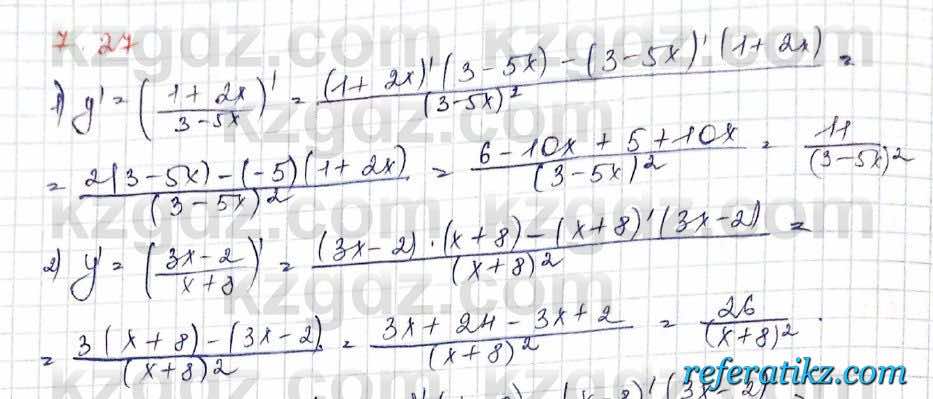 7. 27
1) y' = ((1 + 2x)/(3 - 5x))' = ((1 + 2x)'(3 - 5x) - (3 - 5x)'(1 + 2x))/(3 - 5x)² =
= (2(3 - 5x) - (-5)(1 + 2x))/(3 - 5x)² = (6 - 10x + 5 + 10x)/(3 - 5x)² = 11/(3 - 5x)²
2) y' = ((3x - 2)/(x + 8))' = ((3x - 2) · (x + 8) - (x + 8)'(3x - 2))/(x + 8)² =
= (3(x + 8) - (3x - 2))/(x + 8)² = (3x + 24 - 3x + 2)/(x + 8)² = 26/(x + 8)².
kzgdz.com
referatikz.com